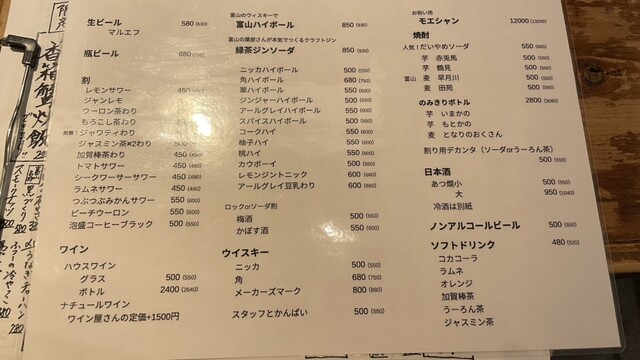 生ビール 580 (630)
マルエフ
瓶ビール 680
割
レモンサワー 450
ジャンレモ
ウーロン茶わり
もろこし茶わり
ジャワティわり
ジャスミン茶×2わり 500
加賀棒茶わり 450 (490)
トマトサワー 450 (490)
シークワーサーサワー 450 (490)
ラムネサワー 450 (490)
つぶつぶみかんサワー 550 (600)
ピーチウーロン 550 (600)
泡盛コーヒーブラック 500 (550)
ワイン
ハウスワイン
グラス 500 (550)
ボトル 2400 (2640)
ナチュールワイン
ワイン屋さんの定価+1500円
富山のウィスキーで
富山ハイボール 850 (930)
富山の薬屋さんが本気でつくるクラフトジン
緑茶ジンソーダ 850 (930)
ニッカハイボール 500 (550)
角ハイボール 680 (750)
翠ハイボール 550 (600)
ジンジャーハイボール 500 (550)
アールグレイハイボール 550 (600)
スパイスハイボール 500 (550)
コークハイ 550 (600)
柚子ハイ 550 (600)
桃ハイ 550 (600)
カウボーイ 500 (550)
レモンジントニック 600 (660)
アールグレイ豆乳わり 600 (660)
ロックorソーダ割
梅酒 500 (550)
かぼす酒 550 (600)
ウイスキー
ニッカ 500 (550)
角 680 (750)
メーカーズマーク 800 (880)
スタッフとかんぱい 500 (550)
お祝い用
モエシャン 12000 (13200)
焼酎
人気！だいやめソーダ 550 (600)
芋 赤兎馬 500 (550)
芋 鶴見 500 (550)
富山 麦 早月川 500 (550)
麦 田苑 500 (550)
のみきりボトル 2800 (3080)
芋 いまかの
芋 もとかの
麦 となりのおくさん
割り用デカンタ（ソーダorうーろん茶）
500 (550)
日本酒
あつ燗小 500 (550)
大 950 (1040)
冷酒は別紙
ノンアルコールビール 500 (550)
ソフトドリンク 480 (520)
コカコーラ
ラムネ
オレンジ
加賀棒茶
うーろん茶
ジャスミン茶
香箱蟹